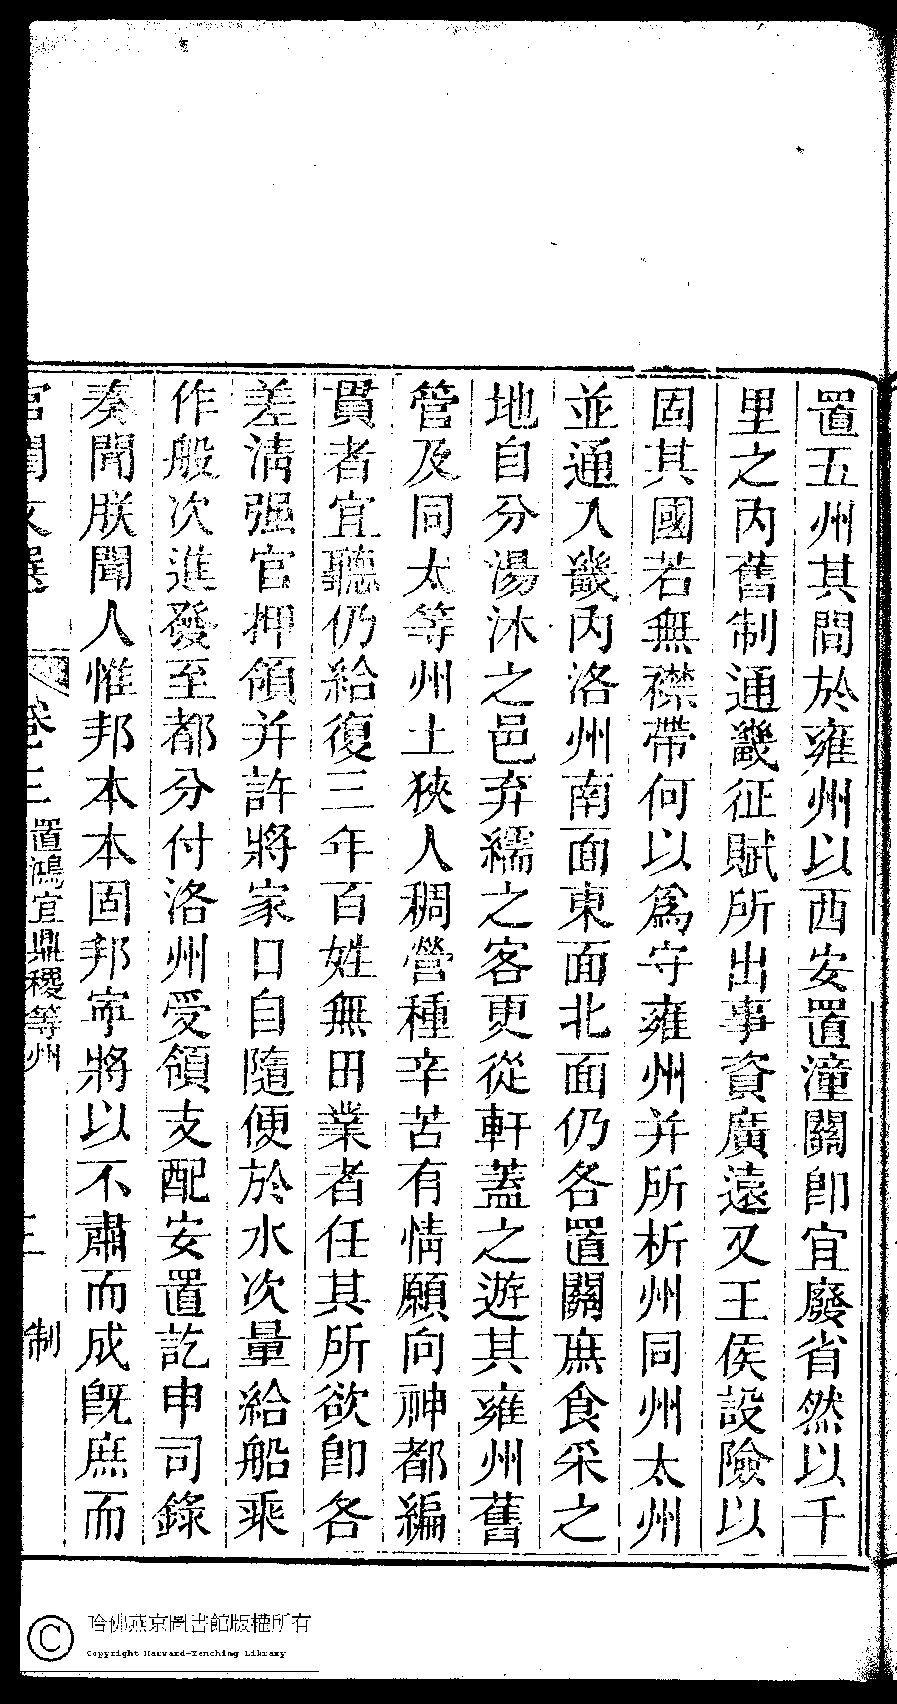 置五州其間於雍州以西安置潼關卽宜廢省然以千
里之內舊制通畿征賦所出事資廣遠又王侯設險以
固其國若無襟帶何以爲守雍州并所析州同州太州
並通入畿內洛州南面東面北面仍各置關庶食采之
地自分湯沐之邑弃繻之客更從軒蓋之遊其雍州舊
管及同太等州土狹人稠營種辛苦有情願向神都編
貫者宜聽仍給復三年百姓無田業者任其所欲卽各
差清强官押領并許將家口自隨便於水次量給船乘
作般次進發至都分付洛州受領支配安置訖申司錄
奏聞朕聞人惟邦本本固邦寧將以不肅而成旣庶而
宮閨文選 卷三 置鴻宜鼎稷等州 三 制
哈佛燕京圖書館版權所有
Copyright Harvard-Yenching Library